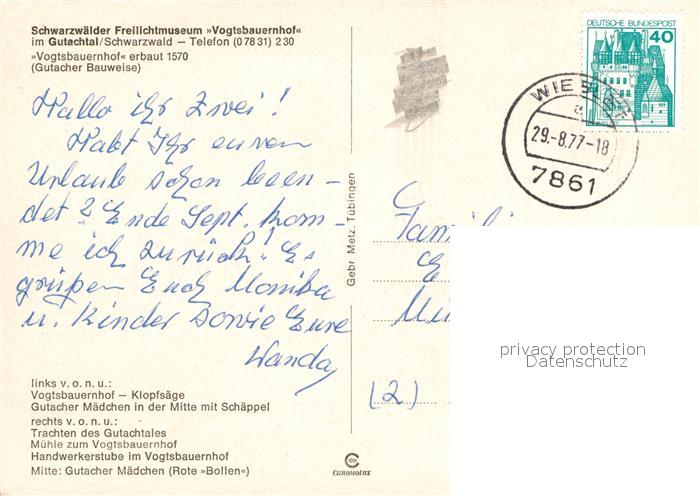 Schwarzwälder Freilichtmuseum »Vogtsbauernhof«
im Gutachtal/Schwarzwald — Telefon (0 78 31) 2 30
»Vogtsbauernhof« erbaut 1570
(Gutacher Bauweise)
DEUTSCHE BUNDESPOST
40
29.-8.77-18
7861
Hallo ihr Zwei!
Habt Ihr euren
Urlaub schon been-
det? Ende Sept. kom-
me ich zurück! Es
grüßen Euch Monika
u. Kinder sowie Eure
Wanda
Gebr Metz, Tübingen
Famili
(2)
privacy protection
Datenschutz
links v. o. n. u.:
Vogtsbauernhof — Klopfsäge
Gutacher Mädchen in der Mitte mit Schäppel
rechts v. o. n. u.:
Trachten des Gutachtales
Mühle zum Vogtsbauernhof
Handwerkerstube im Vogtsbauernhof
Mitte: Gutacher Mädchen (Rote »Bollen«)
CHROMOLUX